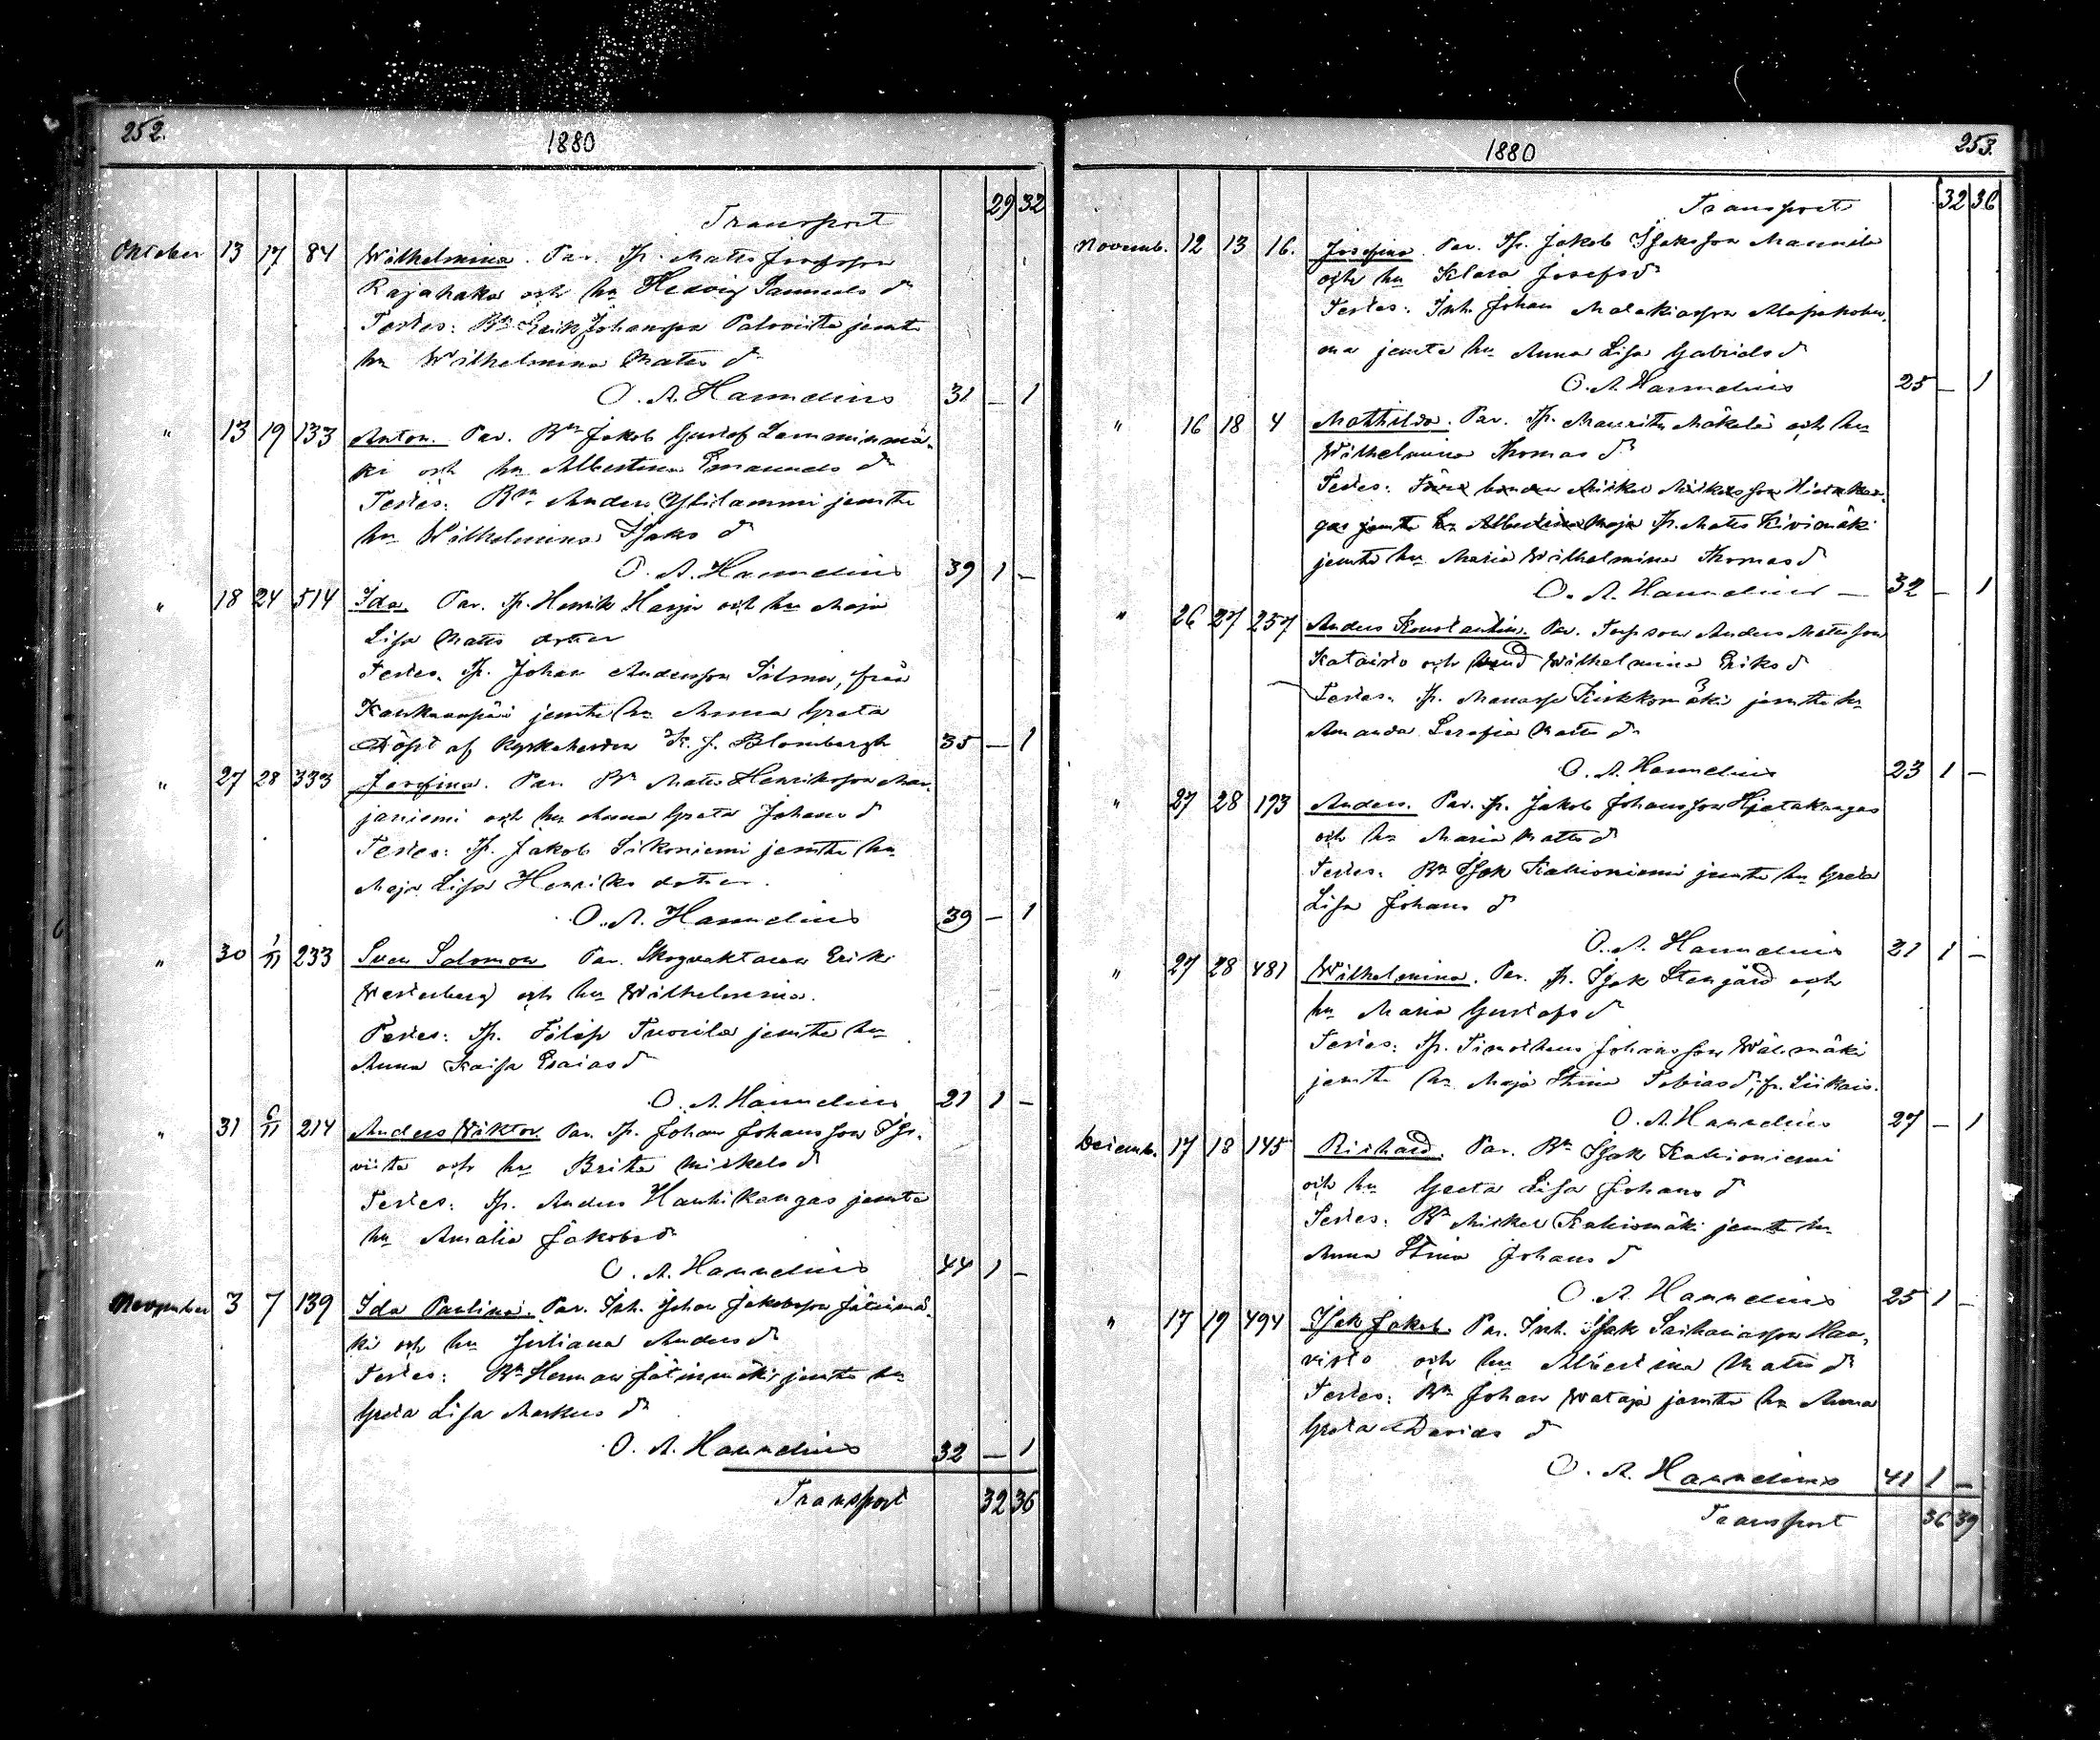 252.
1880
Transport 29 32
Oktober 13 17 84 Wilhelmina. Par. Tp. Matts Josefsson
Rajahaka och hu Hedvig Samuels dr
Testes: Bn Erik Johansson Palovuita jemte
hu Wilhelmina Matts dr
O. A. Hannelius 31 — 1
" 13 19 133 Anton. Par. Bn Jakob Gustaf Lamminmä-
ki och hu Albertina Emanuels dr
Testes: Bn Anders Ylilammi jemte
hu Wilhelmina Isaks dr
O. A. Hannelius 39 1 —
" 18 24 514 Ida. Par. Tp. Henrik Harju och hu Maja
Lisa Matts dotter
Testes. Tp. Johan Andersson Silmu, från
Kankaanpää jemte hu Anna Greta
Döpt af Kyrkoherden K. J. Blombergh 35 — 1
" 27 28 333 Josefina. Par. Bn Matts Henriksson Mar-
janiemi och hu Anna Greta Johans dr
Testes: Tp. Jakob Sikoniemi jemte hu
Maja Lisa Henriks dotter.
O. A. Hannelius 39 — 1
" 30 1/11 233 Sven Salomon Par. Skogvaktaren Erik
Westerberg och hu Wilhelmina.
Testes: Tp. Filip Tuorila jemte hu
Anna Kaisa Esaias dr
O. A. Hannelius 21 1 —
" 31 6/11 214 Anders Wiktor Par. Tp. Johan Johansson
och hu Brita Mickels dr
Testes: Tp. Anders Hauhikangas jemte
hu Amalia Jakobs dr
O. A. Hannelius 44 1 —
November 3 7 139 Ida Paulina. Par. Inh. Johan Jakobsson Jätinmä-
ki och hu Juliana Anders dr
Testes: Bn Herman Jätinmäki jemte hu
Greta Lisa Markus dr
O. A. Hannelius 32 — 1
Transport 32 36
1880
253.
Transport 32 36
Novemb. 12 13 16. Josefina. Par. Tp. Jakob Isaksson Mannila
och hu Klara Josefs dr
Testes: Inh. Johan Malakiasson
jemte hu Anna Lisa Gabriels dr
O. A. Hannelius 25 — 1
" 16 18 4 Mathilda. Par. Tp. Maurits Mäkelä och hu
Wilhelmina Thomas dr
Testes:
jemte hu Albertina Maja Tp. Matts Kivimäki
jemte hu Maria Wilhelmina Thomas dr
O. A. Hannelius — 32 — 1
" 26 27 257 Anders Konstantin. Par. Anders Mattsson
Kataisto och Wilhelmina Eriks dr
Testes. Tp. Manasse Kirkkomäki jemte hu
Amanda Serafia Matts dr
O. A. Hannelius 23 1 —
" 27 28 193 Anders. Par. Tp. Jakob Johansson Hietakangas
och hu Maria Matts dr
Testes. Bn Isak Kalioniemi jemte hu Greta
Lisa Johans dr
O. A. Hannelius 31 1 —
" 27 28 481 Wilhelmina. Par. Tp. Isak Stengård och
hu Maria Gustafs dr
Testes: Tp. Timotheus Johansson Wälimäki
jemte hu Maja Stina Tobias dr, fr. Siikais.
O. A. Hannelius 27 — 1
Decemb. 17 18 145 Richard. Par. Bn Isak Kalioniemi
och hu Greta Lisa Johans dr
Testes. Bn Mickel Kaliomäki jemte hu
Anna Stina Johans dr
O. A. Hannelius 25 1 —
" 17 19 494 Isak Jakob. Par. Inh. Isak Sakariasson Han-
visto och hu Albertina Matts dr
Testes: Bn Johan Wataja jemte hu Anna
Greta Davids dr
O. A. Hannelius 41 1 —
Transport 36 39